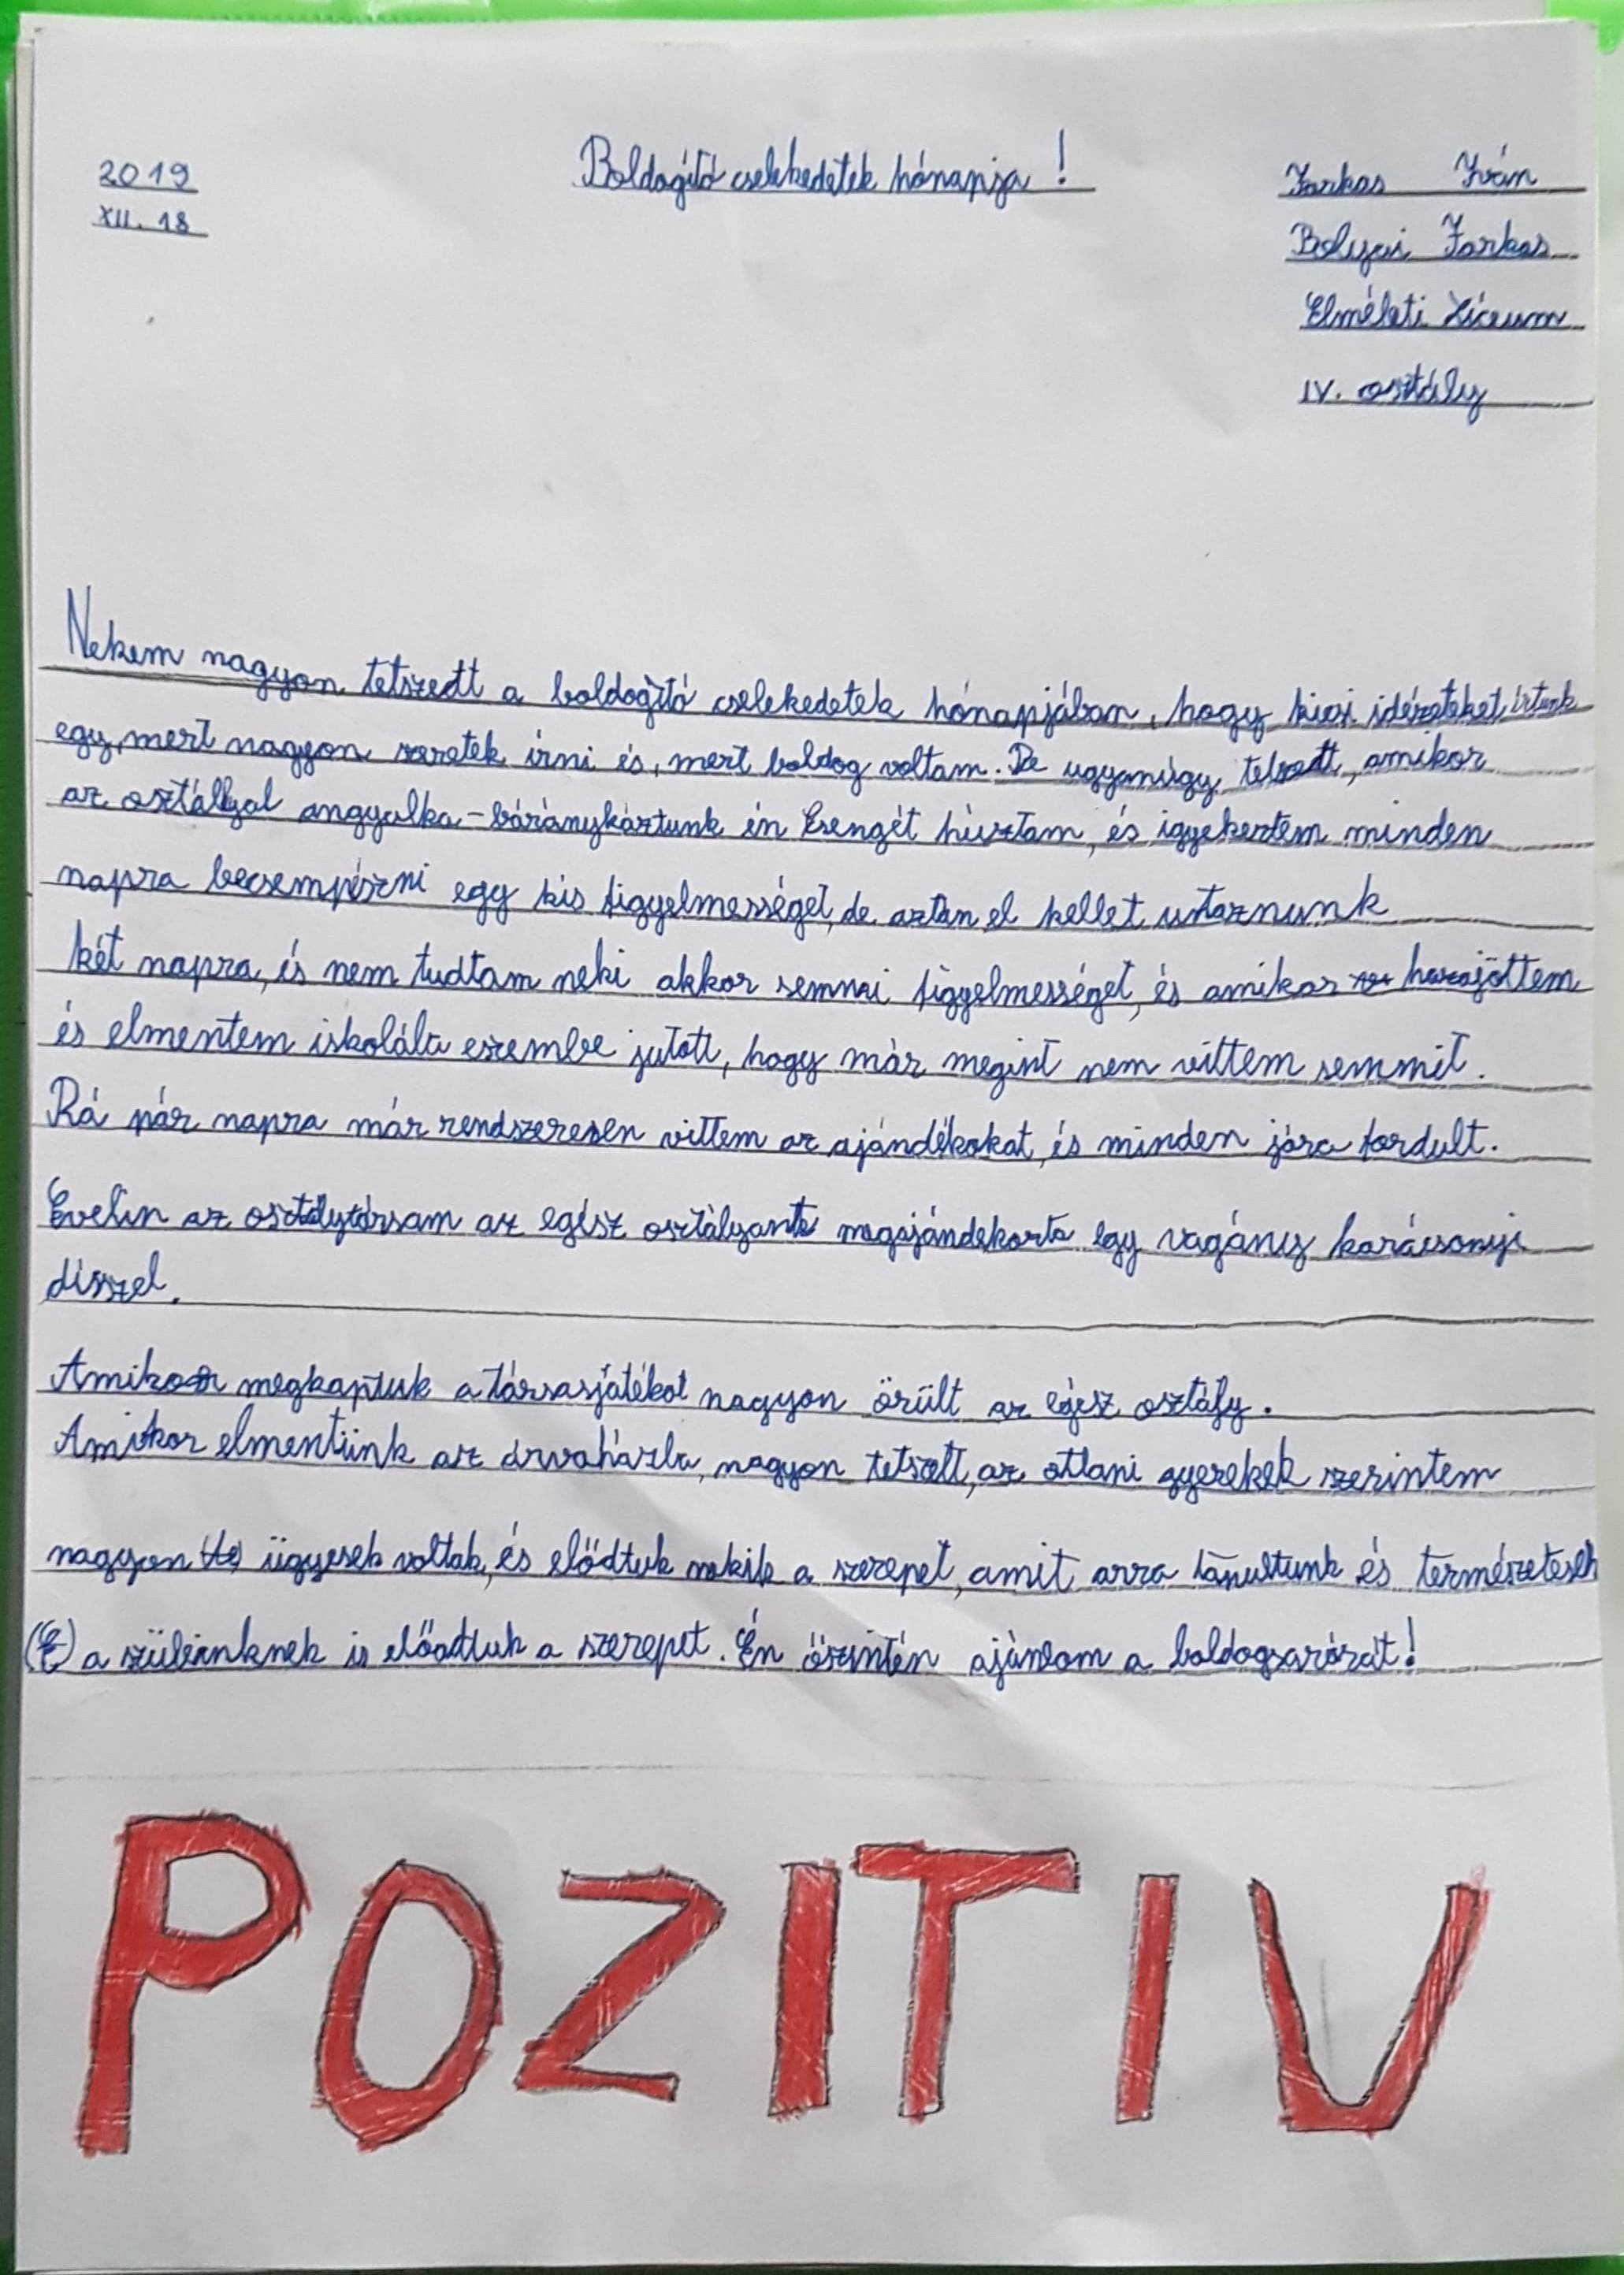 2019
XII. 18
Boldogító cselekedetek hónapja!
Farkas Iván
Bolyai Farkas
Elméleti Líceum
IV. osztály
Nekem nagyon tetszett a boldogító cselekedetek hónapjában, hogy kicsi idézeteket írtunk
egy, mert nagyon szeretek írni és, mert boldog voltam. De ugyanúgy tetszett, amikor
az osztállyal angyalka-báránykáztunk én Csengét húztam, és igyekeztem minden
napra becsempészni egy kis figyelmességet, de aztán el kellet utaznunk
két napra, és nem tudtam neki akkor semmi figyelmességet, és amikor hazajöttem
és elmentem iskolába eszembe jutott, hogy már megint nem vittem semmit.
Rá pár napra már rendszeresen vittem az ajándékokat, és minden jóra fordult.
Evelin az osztálytársam az egész osztályank megajándékozta egy vagány karácsonyi
disszel.
Amikor megkaptuk a társasjátékot nagyon örült az egész osztály.
Amikor elmentünk az árvaházba, nagyon tetszett, az ottani gyerekek szerintem
nagyon ügyesek voltak, és elődtuk nekik a szerepet, amit arra tanultunk és természetesen
a szüleinknek is előadtuk a szerepet. Én őszintén ajánlom a boldogsarórát!
POZITIV